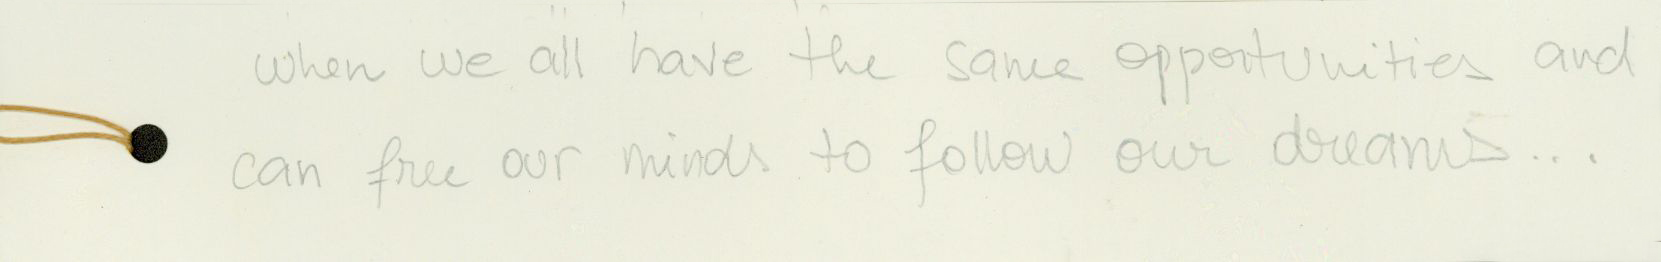 when we all have the same opportunities and
can free our minds to follow our dreams...